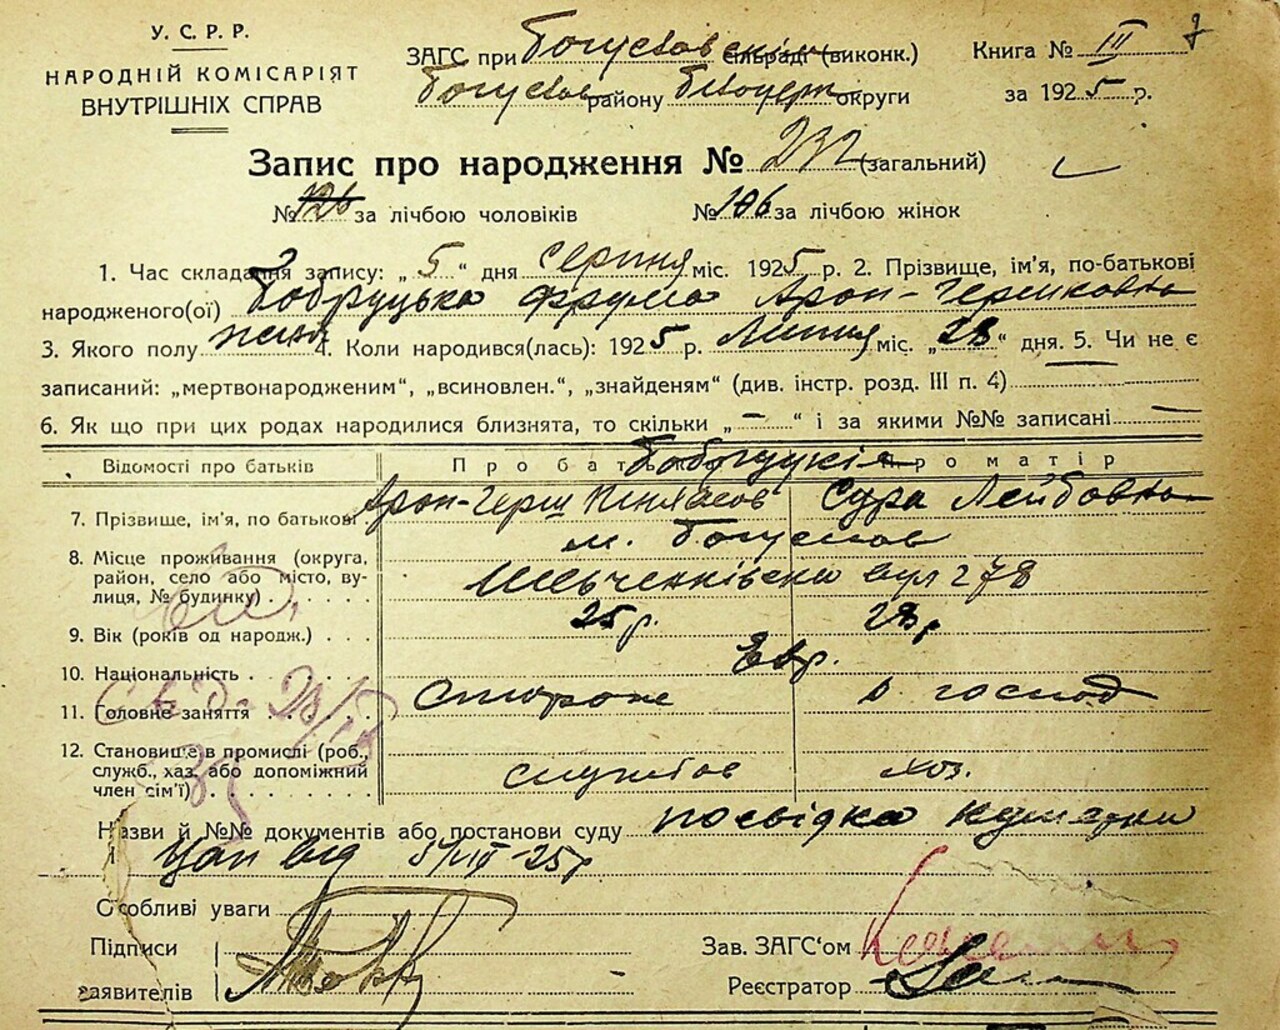 У. С. Р. Р.
НАРОДНІЙ КОМІСАРІЯТ
ВНУТРІШНІХ СПРАВ
ЗАГС при Богуславськім сільраді (виконк.)
Богуслав району Білоцерк округи
Книга № III
за 1925 р.
Запис про народження № 232 (загальний)
№ 126 за лічбою чоловіків № 106 за лічбою жінок
1. Час складання запису: „5“ дня серпня міс. 1925 р. 2. Прізвище, ім'я, по-батькові
народженого(ої) Бобруцька Фрума Арон-Гершковна
3. Якого полу жін 4. Коли народився(лась): 1925 р. Липня міс. „28“ дня. 5. Чи не є
записаний: „мертвонародженим“, „всиновлен.“, „знайденям“ (див. інстр. розд. III п. 4)
6. Як що при цих родах народилися близнята, то скільки „—“ і за якими №№ записані —
Відомості про батьків Про батька Про матір
Бобруцкія
7. Прізвище, ім'я, по батькові Арон-Герш Сура Лейбовна
8. Місце проживання (округа, район, село або місто, вулиця, № будинку) м. Богуслав
Шевченківська вул 278
9. Вік (років од народж.) 25 р. 28 р.
10. Національність Євр.
11. Головне заняття стороже д. господ
12. Становище в промислі (роб., служб., хаз. або допоміжний член сім'ї) службов хоз.
Назви й №№ документів або постанови суду посвідка
від 5/VIII-25 р
Особливі уваги
Підписи
заявителів
Зав. ЗАГС'ом
Реєстратор